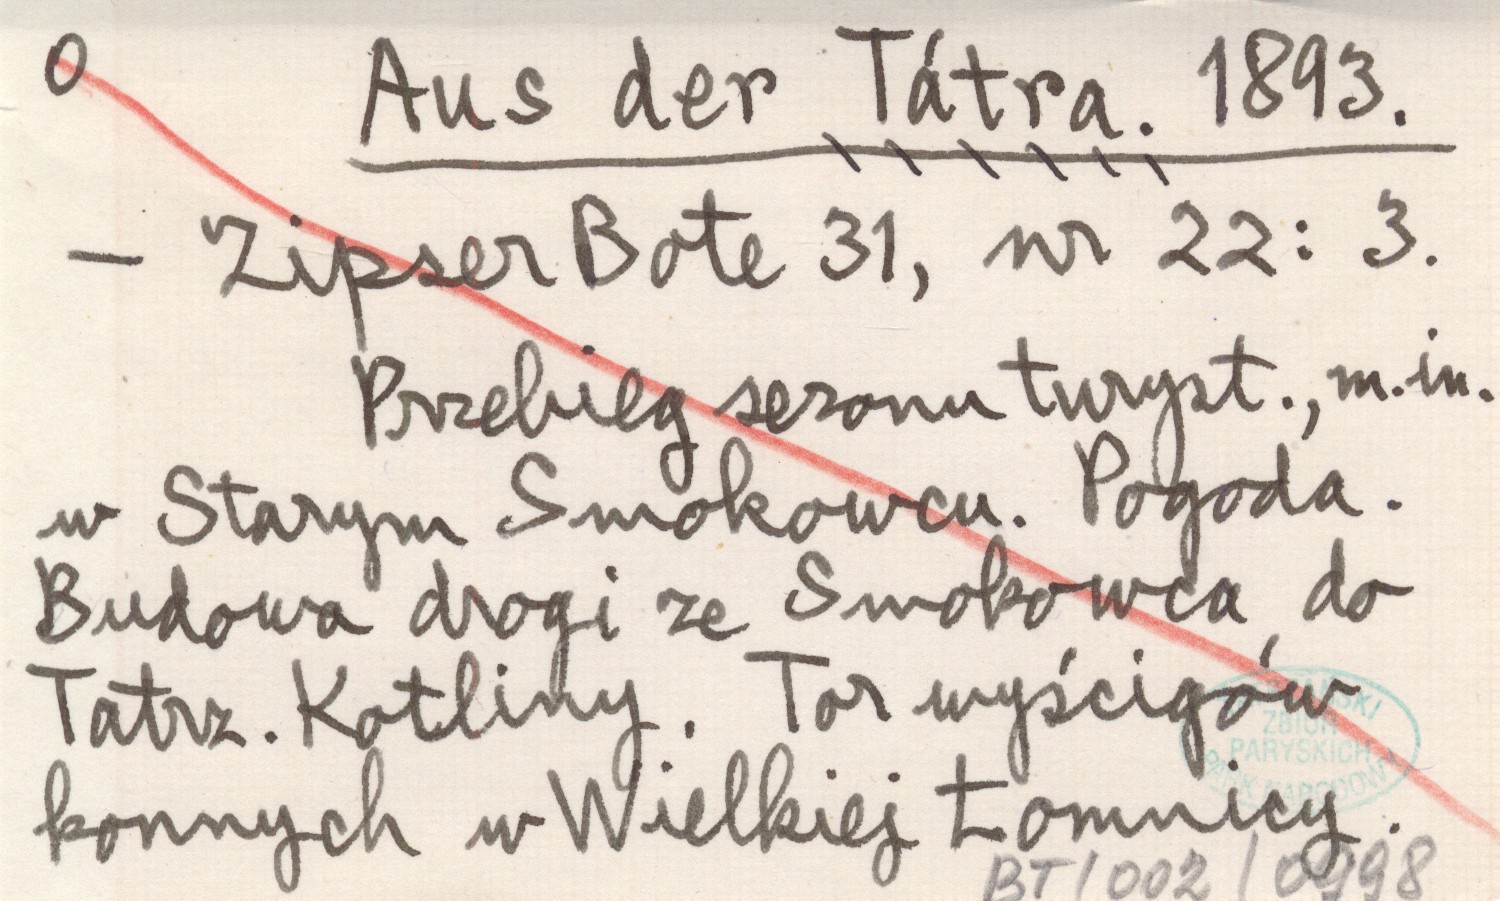 O
Aus der Tátra. 1893.
— Zipser Bote 31, nr 22: 3.
Przebieg sezonu turyst., m.in.
w Starym Smokowcu. Pogoda.
Budowa drogi ze Smokowca do
Tatrz. Kotliny. Tor wyścigów
konnych w Wielkiej Łomnicy.
ZBIÓR
PARYSKICH
PARK NARODOWY
BT/002/0998